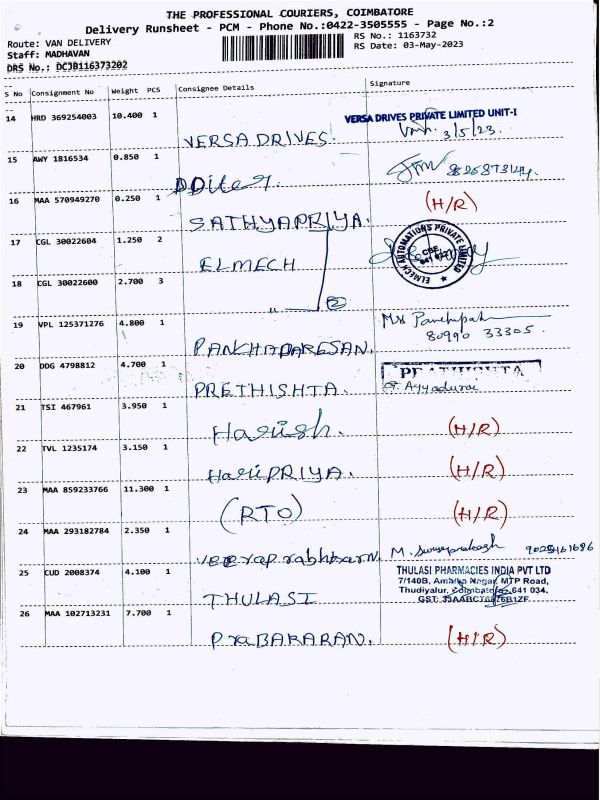 THE PROFESSIONAL COURIERS, COIMBATORE
Delivery Runsheet - PCM - Phone No.:0422-3505555 - Page No.:2
Route: VAN DELIVERY
RS No.: 1163732
Staff: MADHAVAN
RS Date: 03-May-2023
DRS No.: DCJB116373202
S No Consignment No Weight PCS Consignee Details Signature
14 HRD 369254003 10.400 1
VERSA DRIVES PRIVATE LIMITED UNIT-I
VERSA DRIVES. 3/5/23
15 AWY 1816534 0.850 1
16 MAA 570949270 0.250 1 (H/R)
SATHYAPRIYA.
17 CGL 30022604 1.250 2
ELMECH AUTOMATIONS PRIVATE LIMITED
CBE
ELMECH
18 CGL 30022600 2.700 3
19 VPL 125371276 4.800 1
80990 33305
PANCHADARESAN.
20 DDG 4798812 4.700 1
PRETHISHTA.
Ayyadurai
21 TSI 467961 3.950 1
Harish. (H/R)
22 TVL 1235174 3.150 1
HariPRIYA. (H/R)
23 MAA 859233766 11.300 1
(RTO) (H/R)
24 MAA 293182784 2.350 1
M.
25 CUD 2008374 4.100 1
THULASI PHARMACIES INDIA PVT LTD
7/140B, Amalka Nagar, MTP Road,
Thudiyalur, Coimbatore 641 034.
THULASI GST:
26 MAA 102713231 7.700 1
PraBAKARAN. (H/R)